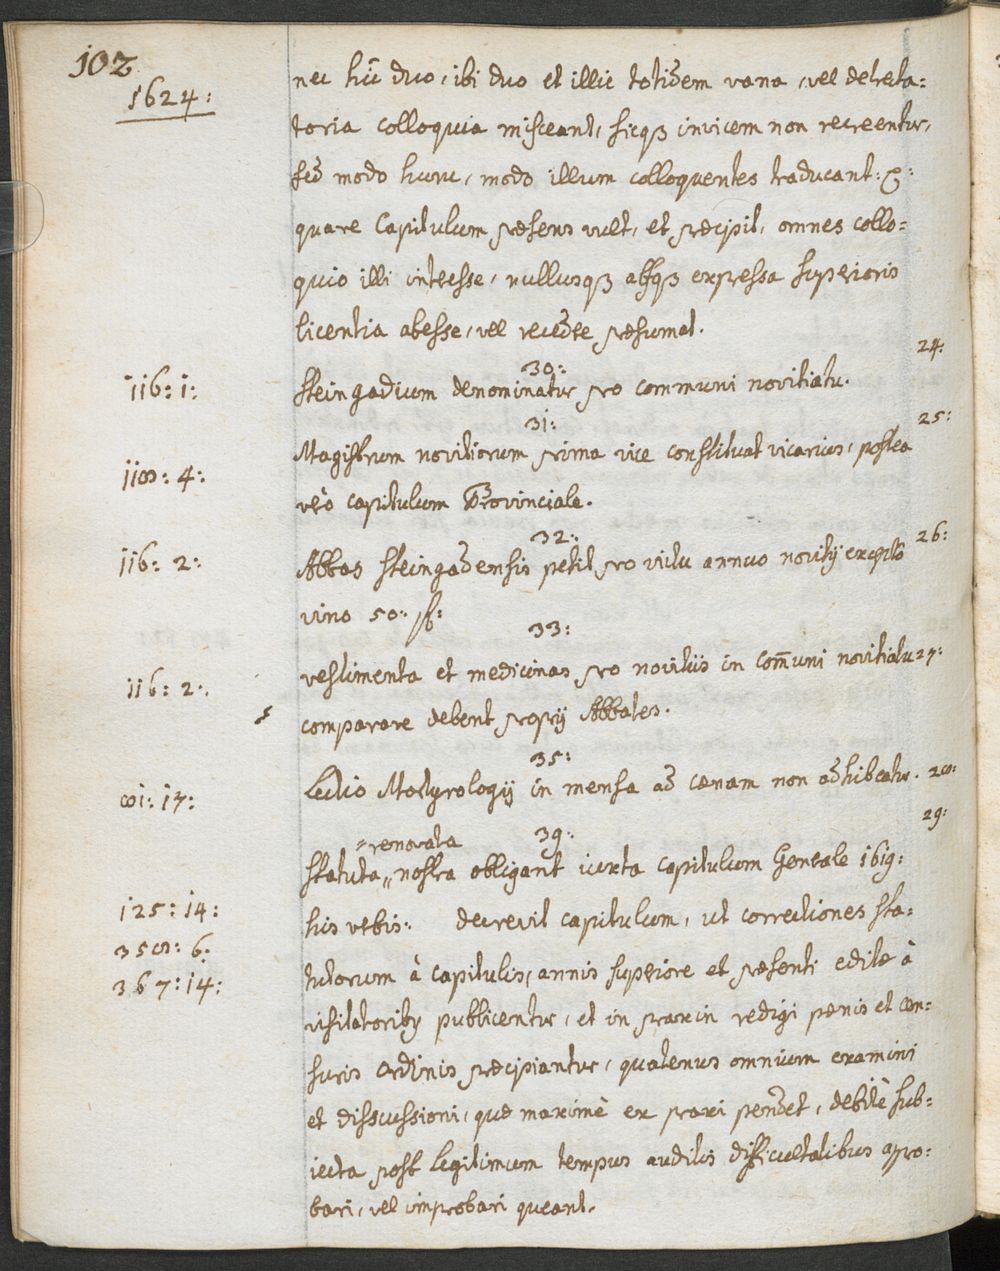 102
1624:
nec hic duo, ibi duo et illic totidem vana, vel detracta=
toria colloquia misceant, sicqꝫ invicem non recreentur,
sed modo hunc, modo illum colloquentes traducant:
quare Capitulum præsens vult, et præcipit, omnes collo=
quio illi interesse, nullusqꝫ absqꝫ expressa superioris
licentia abesse, vel recedere præsumat.
24:
30:
116: 1: Steingadium denominatur pro communi novitiatu.
31: 25:
Magistrum novitiorum prima vice constituat vicarius, postea
118: 4: vero capitulum Provinciale.
32: 26:
116: 2: Abbas Steingadensis petit pro victu annuo novitij excepto
vino 50: fl:
33:
vestimenta et medicinas pro novitiis in com̄uni novitiatu 27:
116: 2: comparare debent proprij Abbates.
35:
81: 17: Lectio Martyrologij in mensa ad cœnam non adhibeatur. 28:
29:
=renovata 39:
Statuta,, nostra obligant iuxta capitulum Genrale 1619:
125: 14: his verbis: decrevit capitulum, ut correctiones sta=
358: 6: tutorum à capitulis, annis superiore et præsenti editæ à
367: 14: visitatoribus publicentur, et in praxin redigi pœnis et cen=
suris ordinis præcipiantur, quatenus omnium examini
et discussioni, quæ maximè ex praxi pendet, debitè sub=
iecta post legitimum tempus auditis difficultatibus appro=
bari, vel improbari queant.